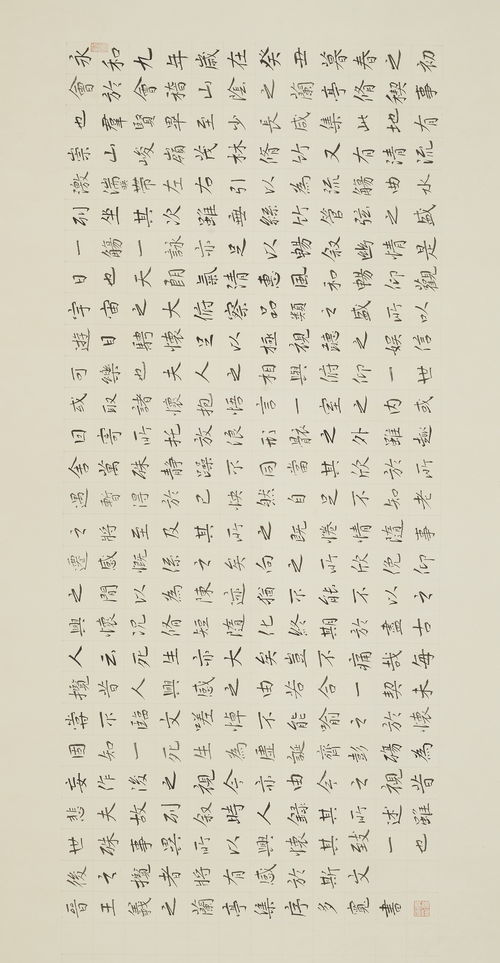 永和九年歲在癸丑暮春之初
會於會稽山陰之蘭亭脩稧事
也羣賢畢至少長咸集此地有
崇山峻嶺茂林脩竹又有清流
激湍帶左右引以為流觴曲水
列坐其次雖無絲竹管弦之盛
一觴一詠亦足以暢叙幽情是
日也天朗氣清惠風和暢仰觀
宇宙之大俯察品類之盛所以
遊目騁懷足以極視聽之娛信
可樂也夫人之相與俯仰一世
或取諸懷抱悟言一室之內或
因寄所托放浪形骸之外雖趣
舍萬殊静躁不同當其欣於所
遇暫得於己快然自足不知老
之將至及其所之既惓情隨事
遷感慨係之矣向之所欣俛仰
之閒以為陳迹猶不能不以之
興懷況脩短隨化終期於盡古
人云死生亦大矣豈不痛哉每
攬昔人興感之由若合一契未
嘗不臨文嗟悼不能喻之於懷
固知一死生為虛誕齊彭殤為
妄作後之視今亦由今之視昔
悲夫故列叙時人錄其所述雖
世殊事異所以興懷其致一也
後之攬者將有感於斯文
晉王羲之蘭亭集序多寬書